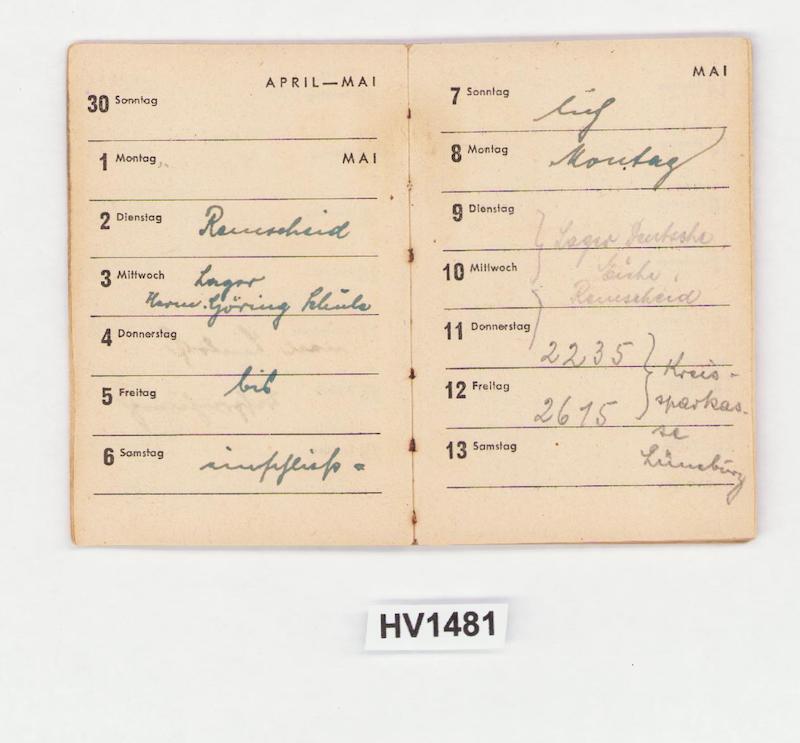 APRIL—MAI
30 Sonntag
1 Montag MAI
2 Dienstag Remscheid
3 Mittwoch Lager
Herm. Göring Schule
4 Donnerstag
5 Freitag bis
6 Samstag einschließ-
MAI
7 Sonntag lich
8 Montag Montag
9 Dienstag Lager Deutsche
10 Mittwoch Eiche,
Remscheid
11 Donnerstag
2235 Kreis-
12 Freitag sparkas-
2615
se
13 Samstag Lüneburg
HV1481